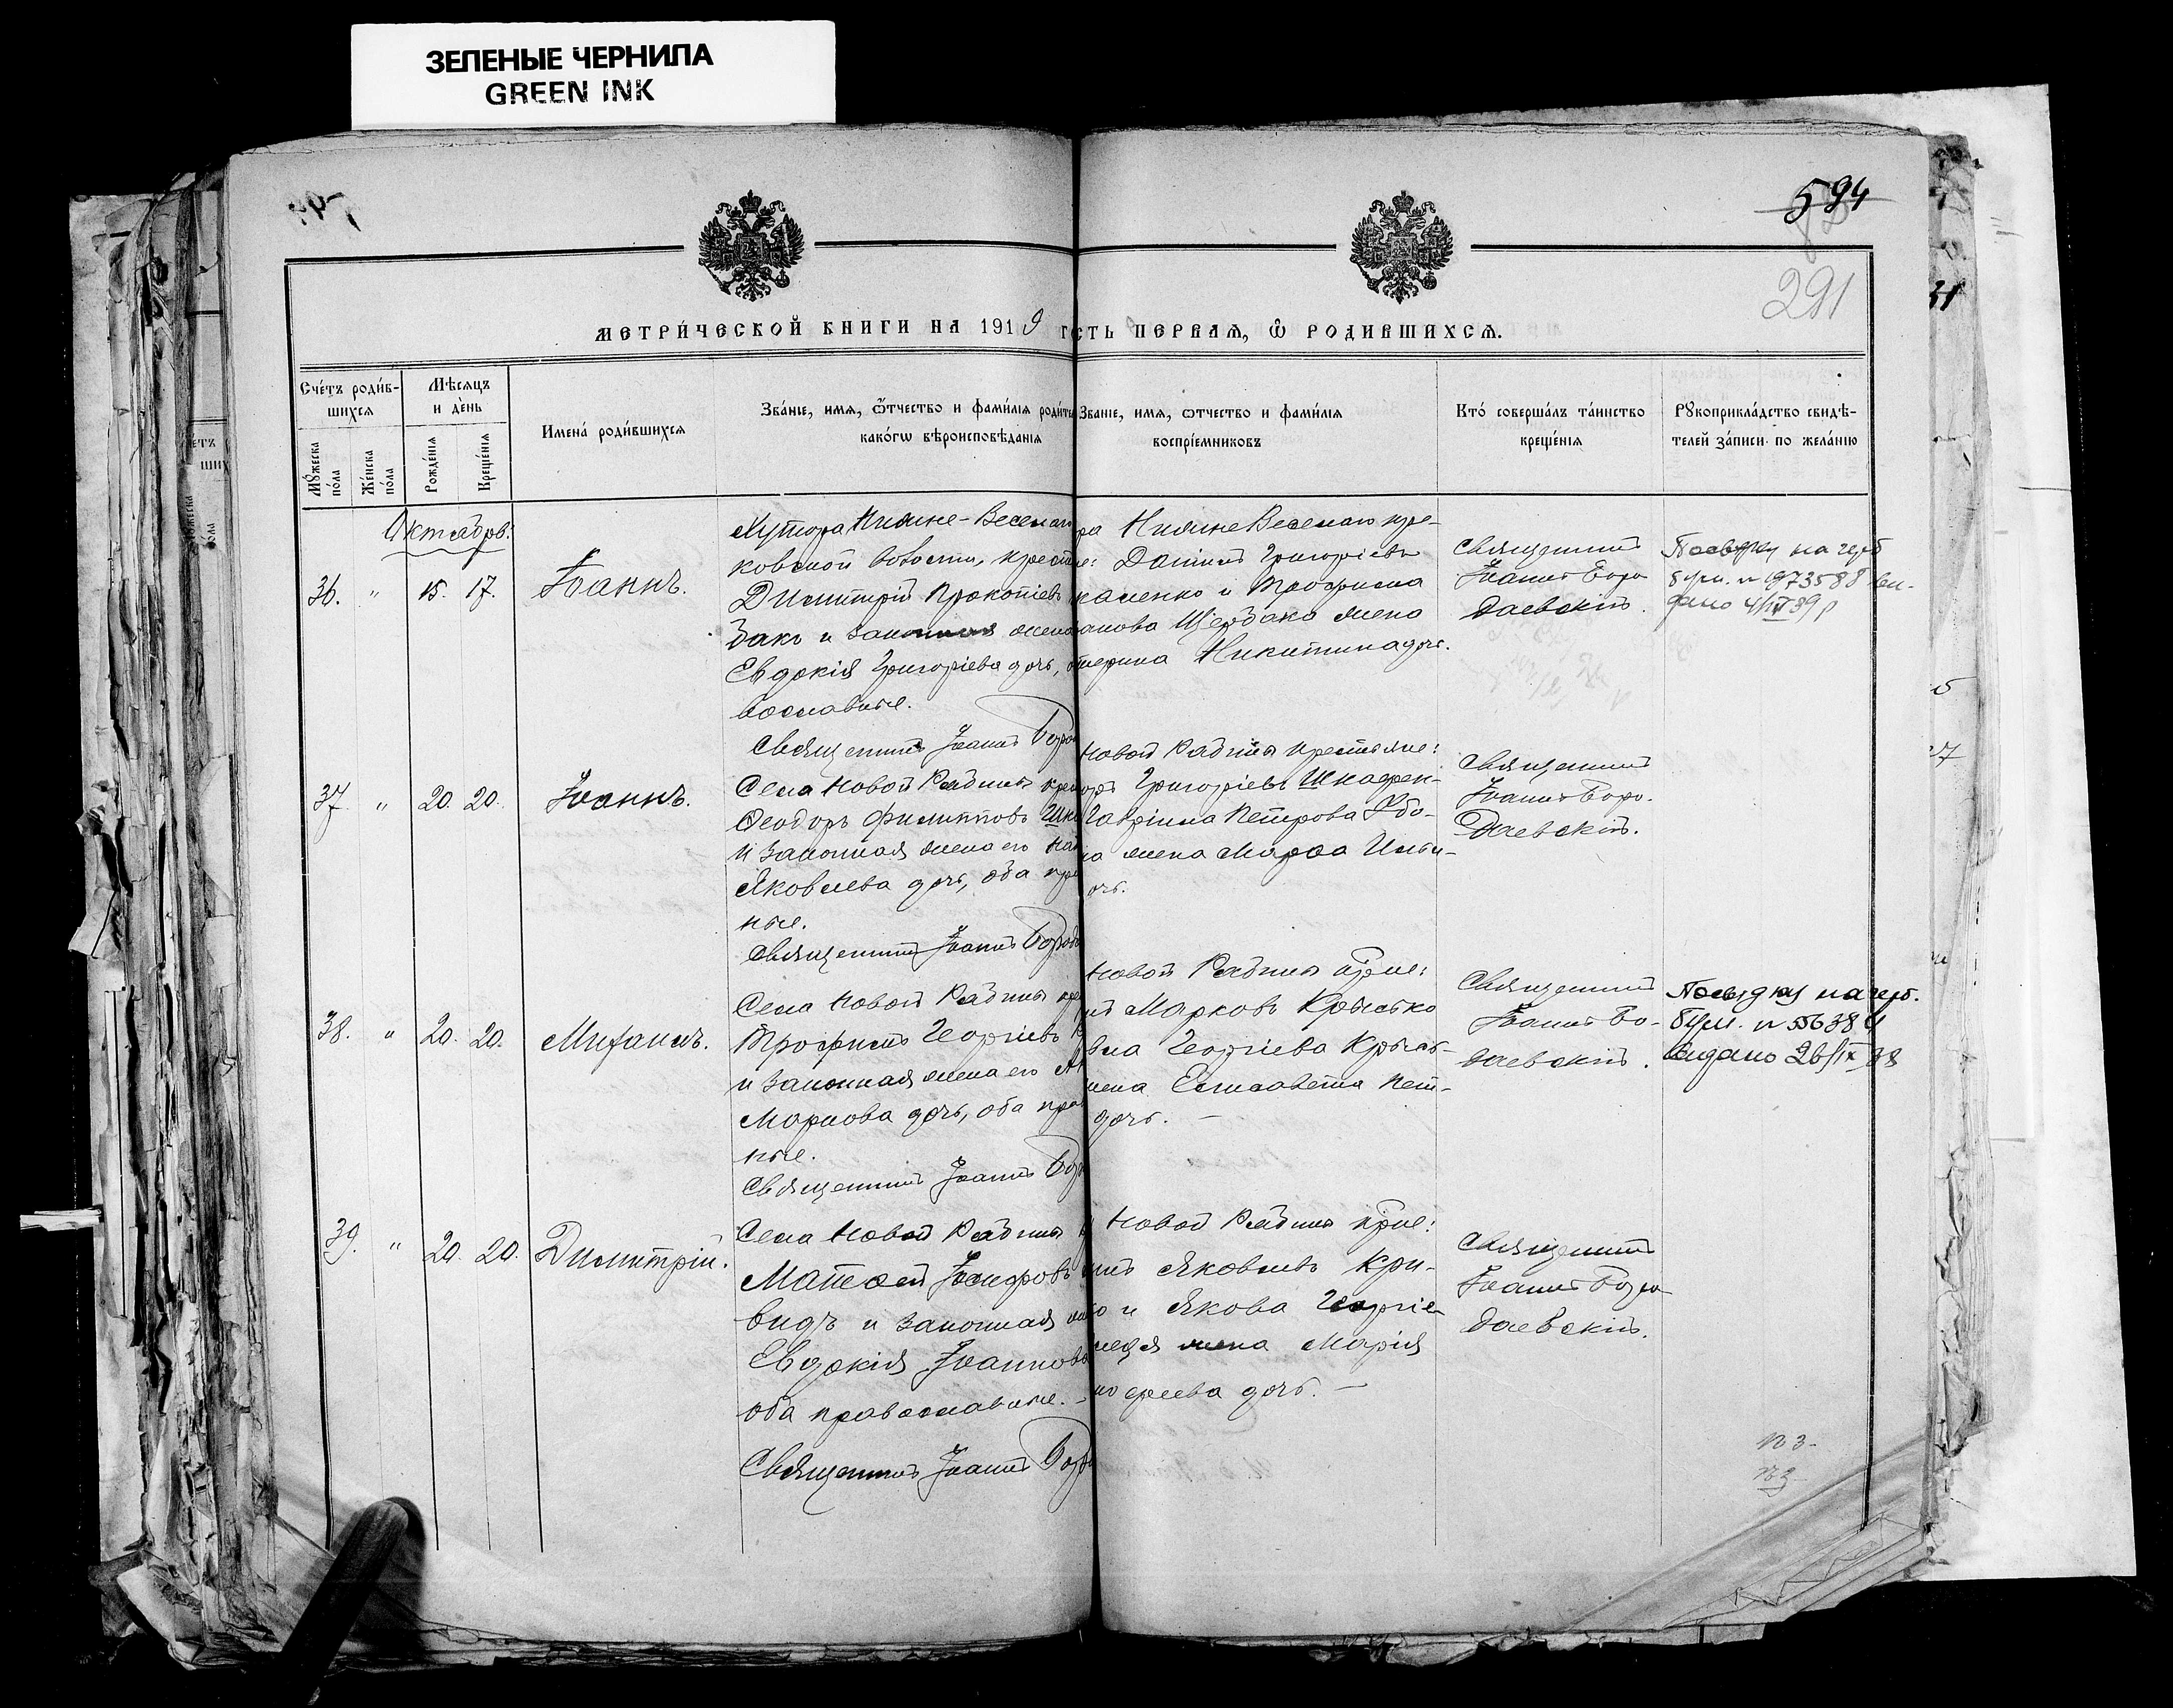 ЗЕЛЕНЫЕ ЧЕРНИЛА
GREEN INK
594
291
МЕТРИ́ЧЕСКОЙ КНИГИ НА 1919
СТЬ ПЕРВАѦ, Ѿ РОДИВШИХСѦ.
Сче́тъ роди́в-
шихсѧ
Мꙋ́жеска по́ла
Же́нска по́ла
Мѣ́сѧцъ
и де́нь
Рожде́нїѧ
Креще́нїѧ
Имена́ роди́вшихсѧ
Зва́нїе, имѧ, ѻ҆́тчество и фами́лїѧ роди́те
како́гѡ вѣроисповѣ́данїѧ
Зва́нїе, имѧ, ѻтчество и фами́лїѧ
воспрїе́мниковъ
Кто̀ соверша́лъ та́инство
креще́нїѧ
Рꙋкоприкла́дство свидѣ́-
телей за́писи по жела́нїю
Октябрь:
36. " 15. 17. Іоаннъ.
Хутора Нижне-Веселаго
ковской волости, крест
Димитрій Прокопіевъ
бакъ и законная жена
Евдокія Григоріева дочь,
вославные.
Священникъ Іоаннъ Боро
ра Нижне Веселаго кре-
Даніилъ Григоріевъ
каленко и Трофима
анова Щербака жена
терина Никитина дочь.
Священникъ
Іоаннъ Боро
даевскій.
Посвідку на герб
бум. № 973588 ви-
дано 4/IV 39 р
37. " 20. 20. Іоаннъ.
Села Новой Рябины крес
Ѳеодоръ Филипповъ Шка
и законная жена его На
Яковлева дочь, оба пра
ные.
Священникъ Іоаннъ Борода
Новой Рябины крестьяне:
оръ Григоріевъ Шкафен-
Гавріила Петрова Убо-
ка жена Марѳа Ильи-
очь.
Священникъ
Іоаннъ Боро-
даевскій.
38. " 20. 20. Михаилъ.
Села Новой Рябины кре
Трофимъ Георгіевъ К
и законная жена его
Маркова дочь, оба прав
ные.
Священникъ Іоаннъ Боро
Новой Рябины кр-не:
ій Марковъ Крысько
вла Георгіева Крысь-
жена Елисавета Пет-
дочь. —
Священникъ
Іоаннъ Бо-
даевскій.
Посвідку на герб.
бум. № 556384
видано 26/IX 38
39. " 20. 20. Димитрій.
Села Новой Рябины
Матѳей Іосифовъ
видъ и законная же
Евдокія Іоаннов
оба православные. —
Священникъ Іоаннъ Боро
Новой Рябины кр-не:
Яковлевъ Кри-
о и Якова Георгіе
жена Марія
дочь. —
Священникъ
Іоаннъ Боро-
даевскій.